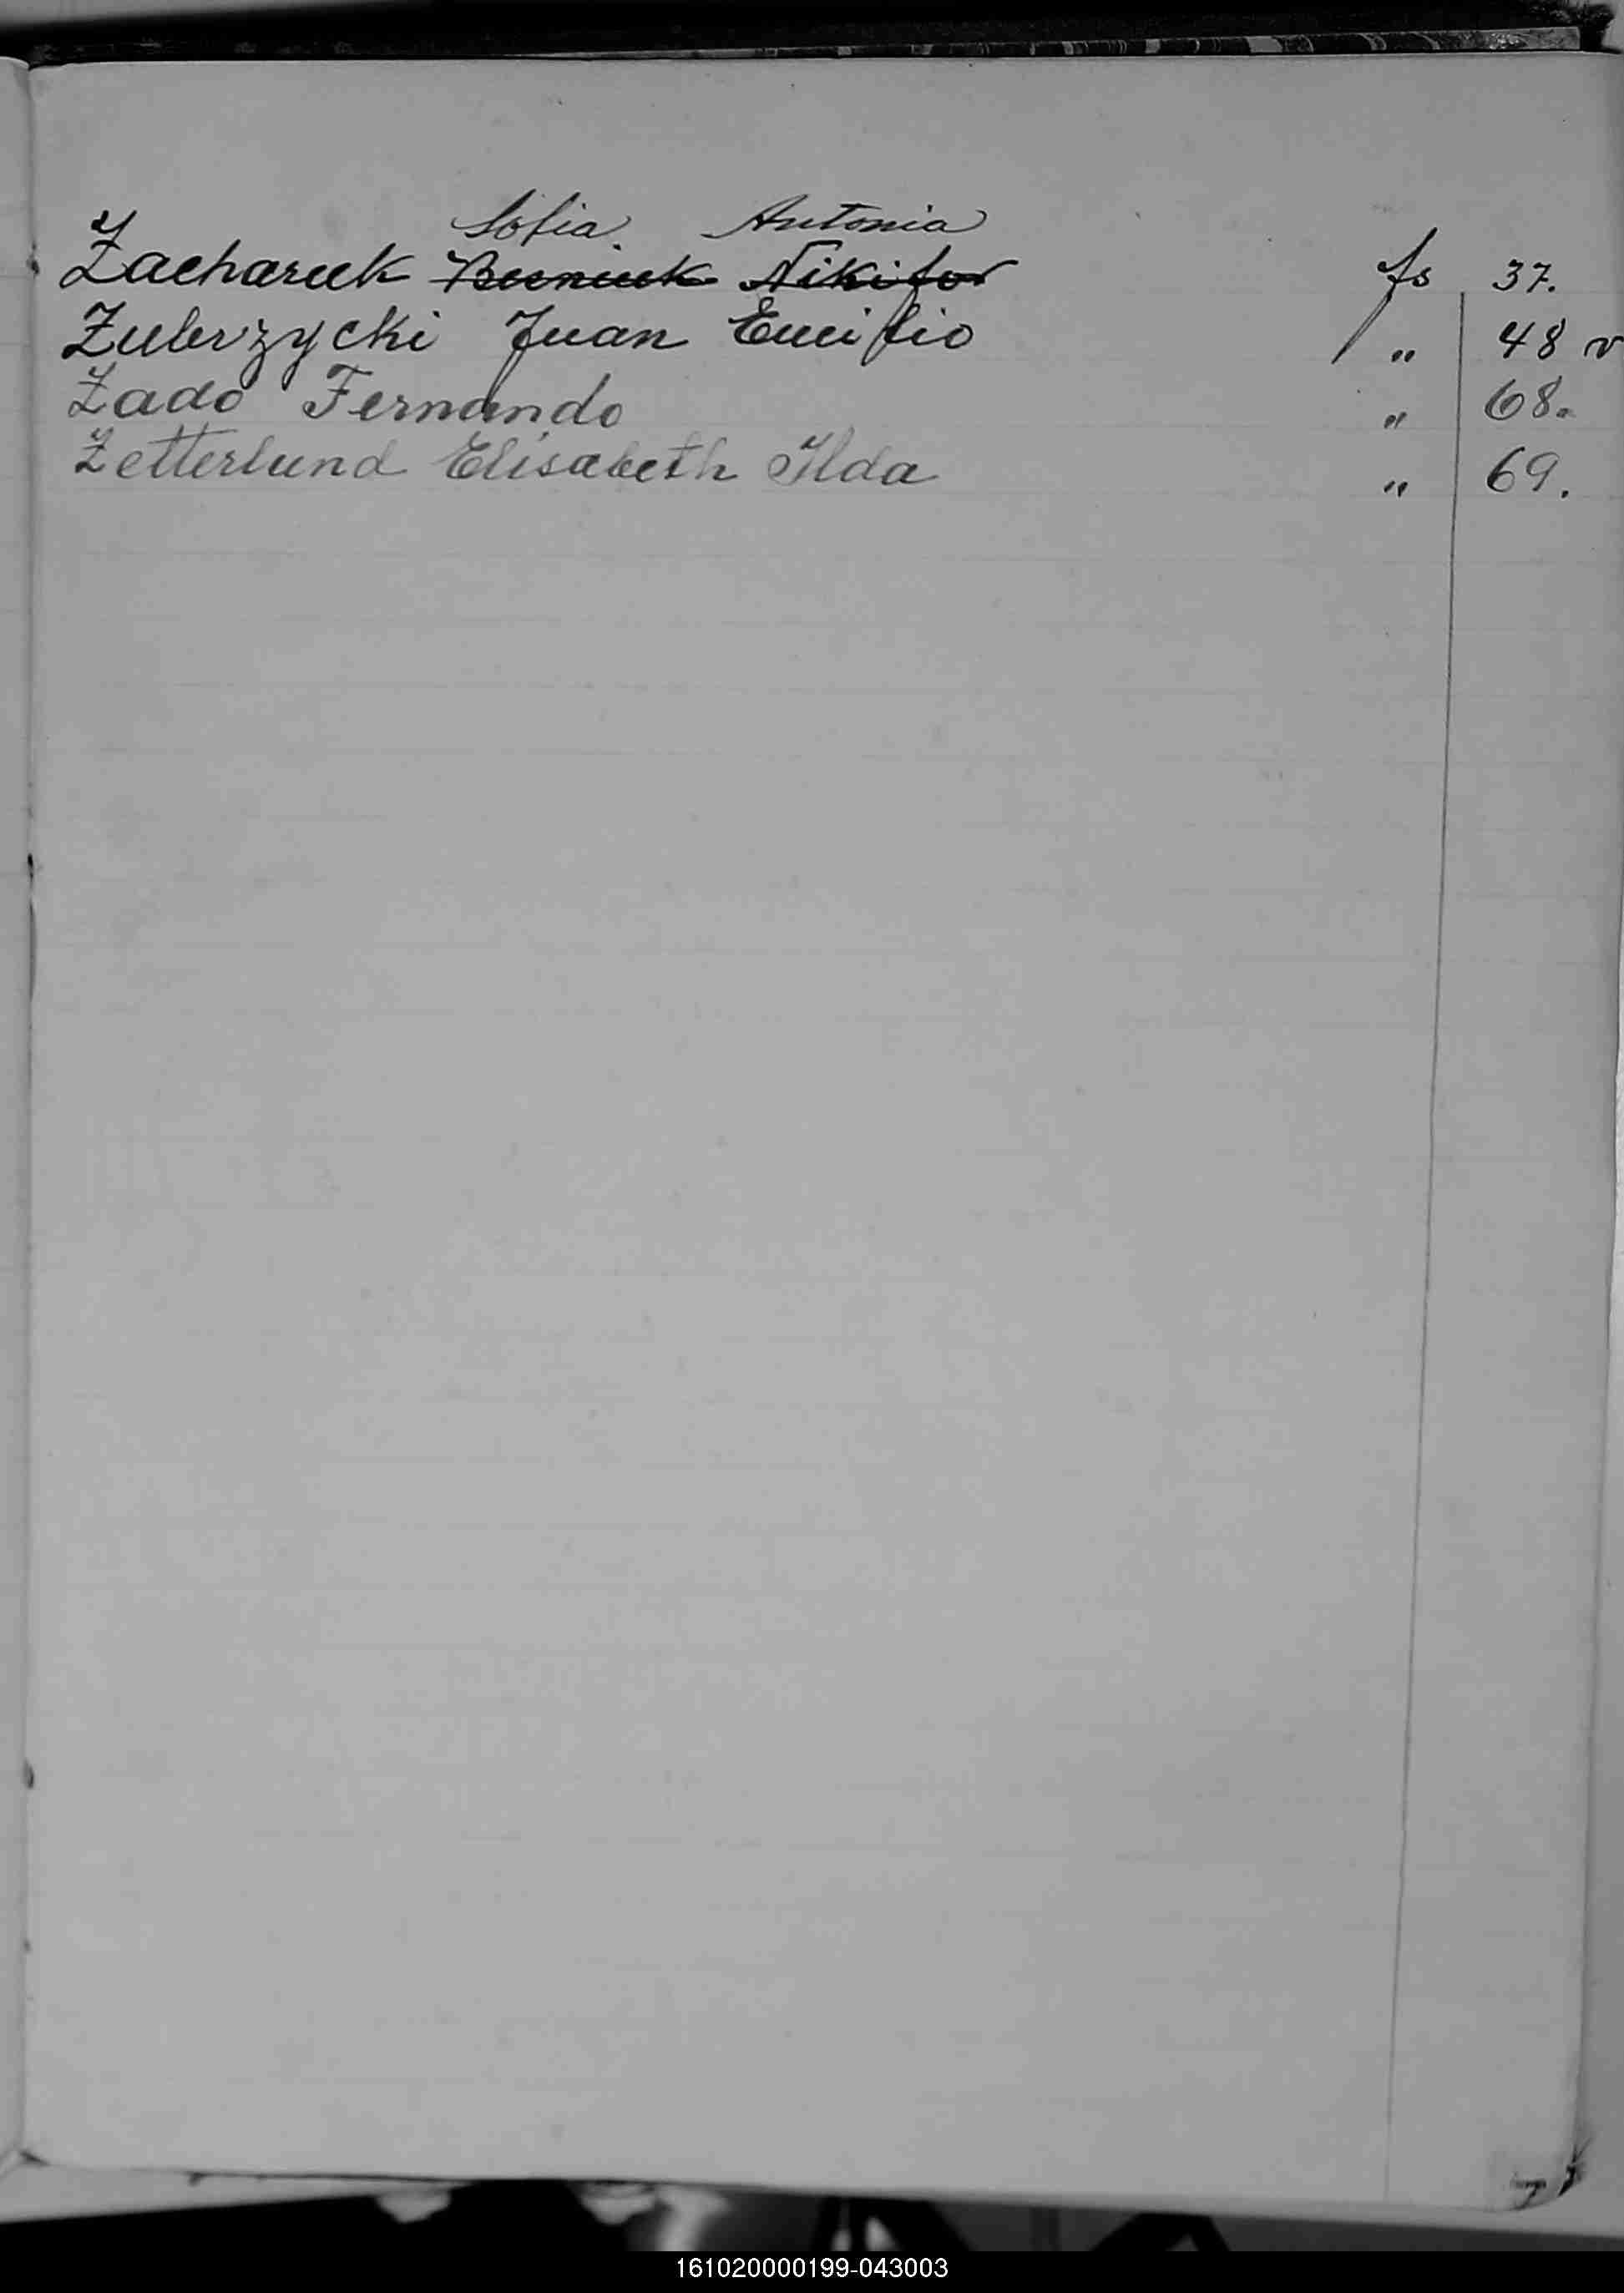 Sofia Antonia
Zacharuk Nikifor fs 37.
Zuberzycki Juan Emilio " 48 v
Zado Fernando " 68.
Zetterlund Elisabeth Ilda " 69.
161020000199-043003